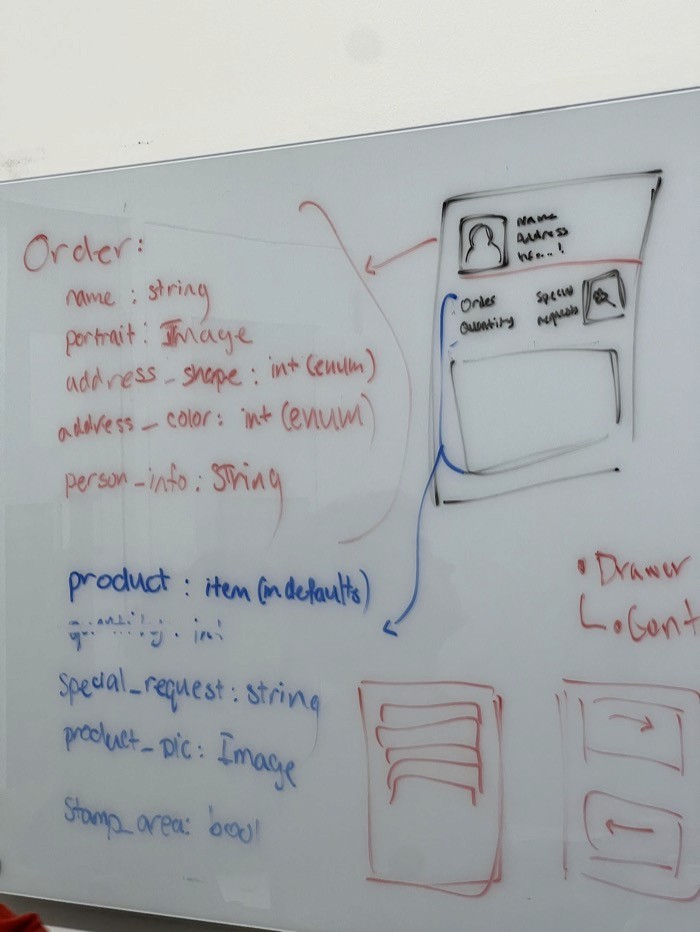 Order:
name : string
portrait : Image
address_shape : int (enum)
address_color : int (enum)
person_info : String
product : item (in defaults)
quantity : int
special_request : string
product_pic : Image
stamp_area : bool
Name
Address
info...!
Order
Quantity
Special
requests
• Drawer